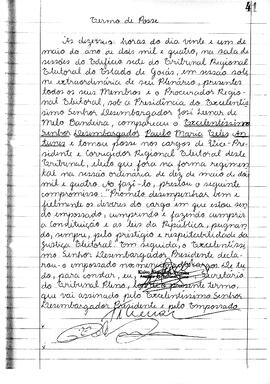 41
Termo de Posse
Às dezesseis horas do dia vinte e um de
maio do ano de dois mil e quatro, na sala de
sessões do Edifício sede do Tribunal Regional
Eleitoral do Estado de Goiás, em sessão sole
ne extraordinária de seu Plenário, presentes
todos os seus Membros e o Procurador Regio-
nal Eleitoral, sob a Presidência do Excelentís
simo Senhor Desembargador José Lenar de
Melo Bandeira, compareceu o Excelentíssimo
Senhor Desembargador Paulo Maria Teles An
tunes e tomou posse nos cargos de Vice-Pre-
sidente e Corregedor Regional Eleitoral deste
Tribunal, eleito que fora na forma regimen
tal na sessão ordinária de dez de maio de dois
mil e quatro. Ao fazê-lo, prestou o seguinte
compromisso: "Prometo desempenhar bem e
fielmente os deveres do cargo em que estou sen
do empossado, cumprindo e fazendo cumprir
a Constituição e as leis da República, pugnan
do, sempre, pelo prestígio e respeitabilidade da
Justiça Eleitoral". Em seguida, o Excelentís
simo Senhor Desembargador Presidente decla
rou o empossado nos cargos. De tu
do, para constar, eu, Secretária
do Tribunal Pleno, o presente termo,
que vai assinado pelo Excelentíssimo Senhor
Desembargador Presidente e pelo Empossado.